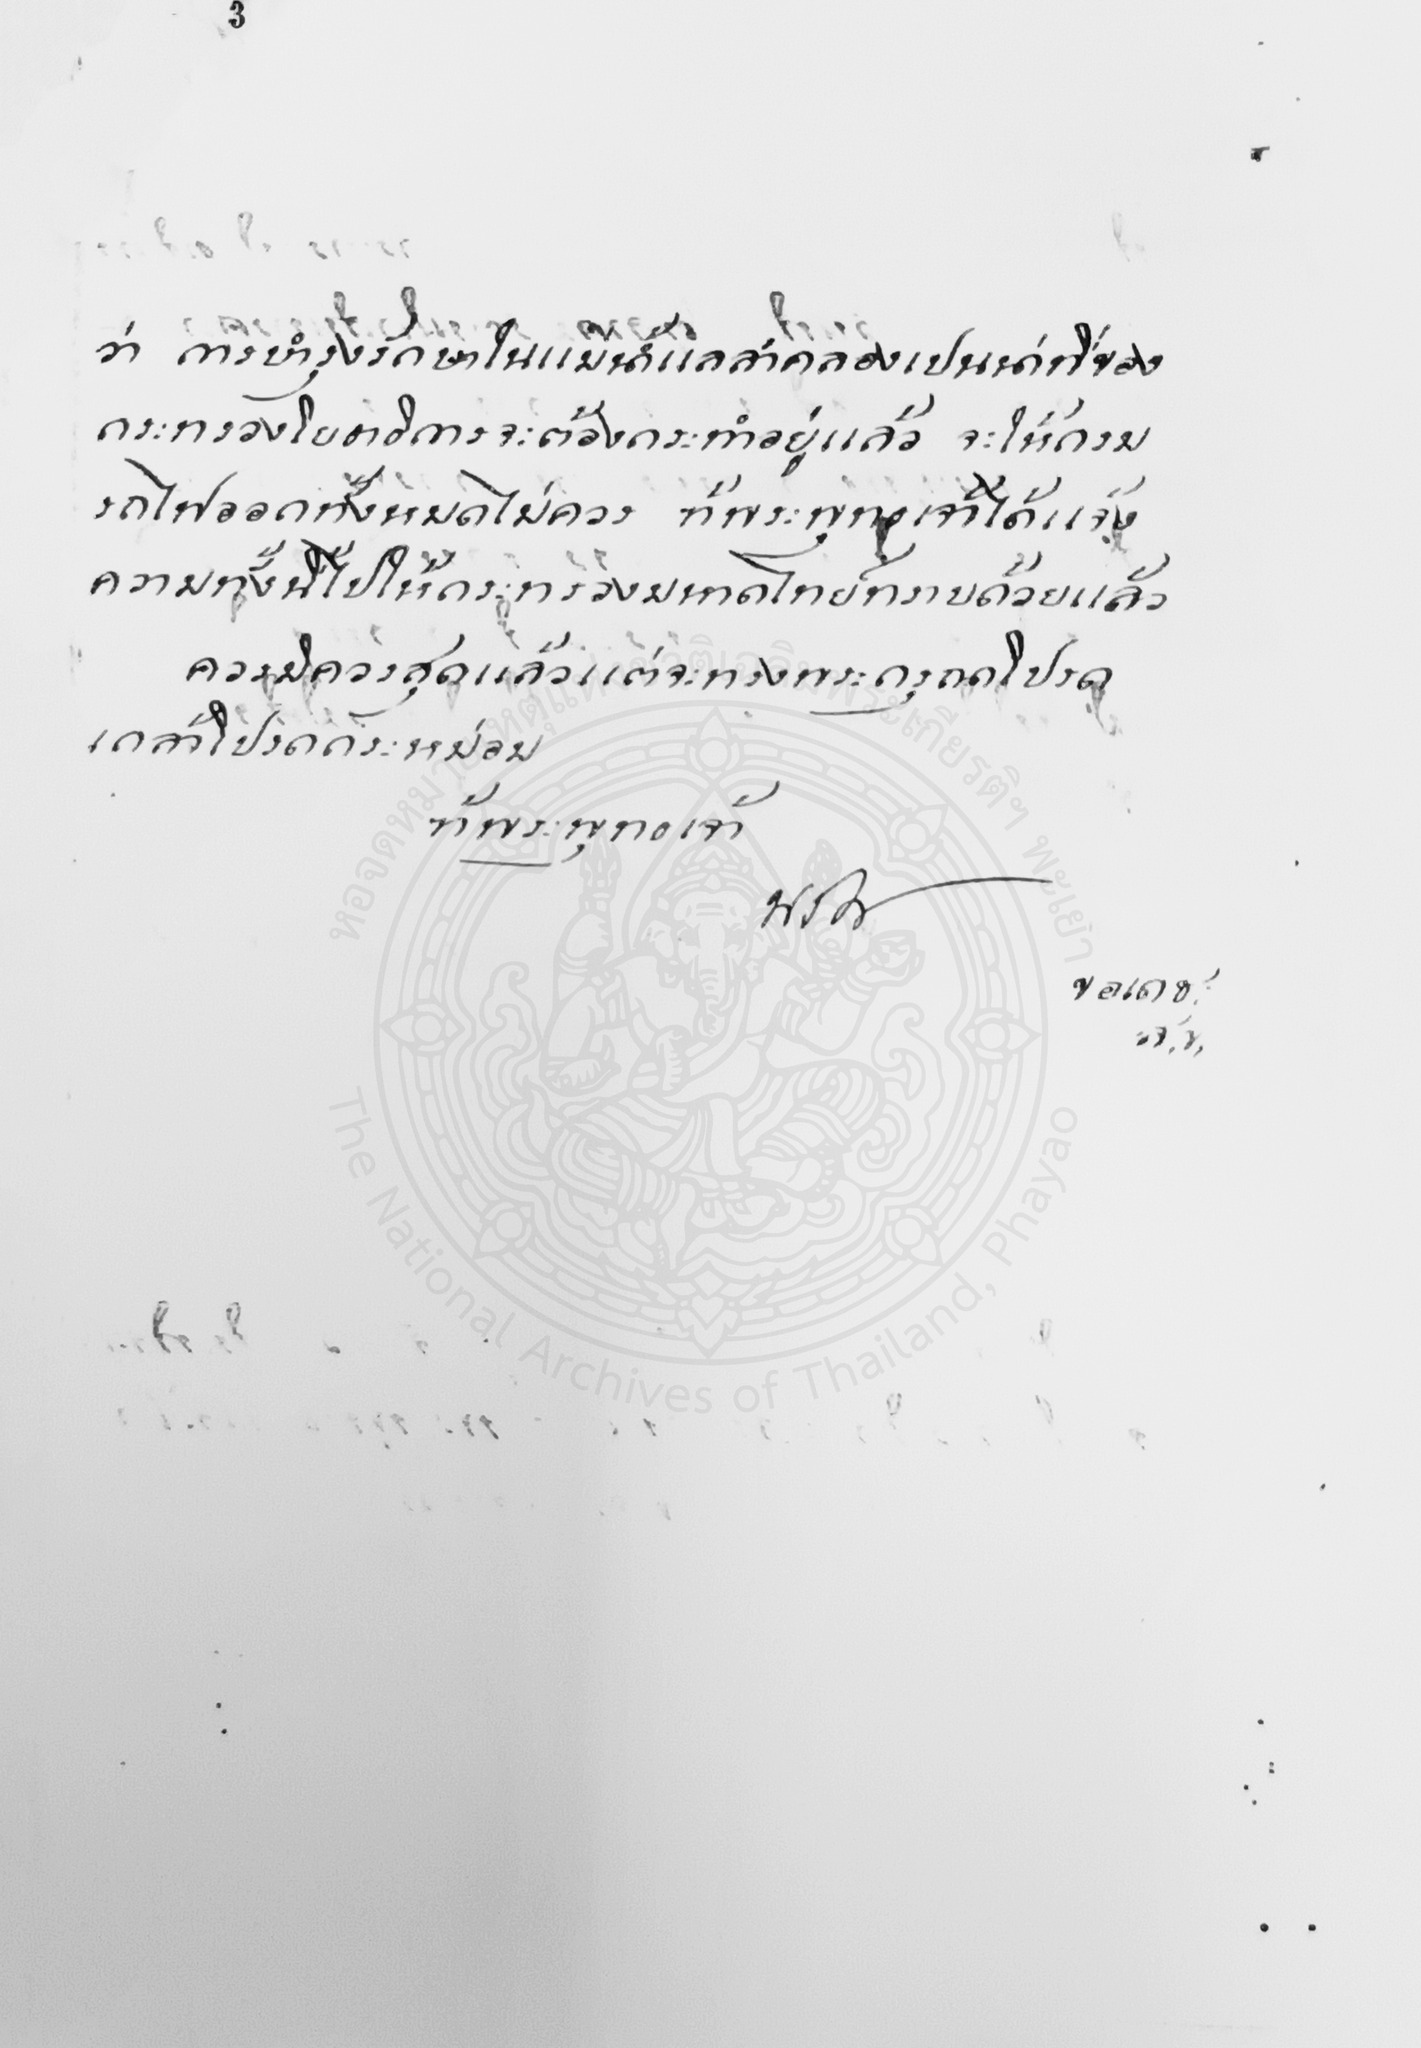 3
ว่า การบำรุงรักษาในแม่น้ำแลลำคลองเปนน่าที่ของ
กระทรวงโยธาธิการจะต้องกระทำอยู่แล้ว จะให้กรม
รถไฟออกทั้งหมดไม่ควร ข้าพระพุทธเจ้าได้แจ้ง
ความทั้งนี้ไปให้กระทรวงมหาดไทยทราบด้วยแล้ว
ควรมิควรสุดแล้วแต่จะทรงพระกรุณาโปรด
เกล้าโปรดกระหม่อม
ข้าพระพุทธเจ้า
ขอเดชะ
หอจดหมายเหตุแห่งชาติเฉลิมพระเกียรติฯ พะเยา
The National Archives of Thailand, Phayao